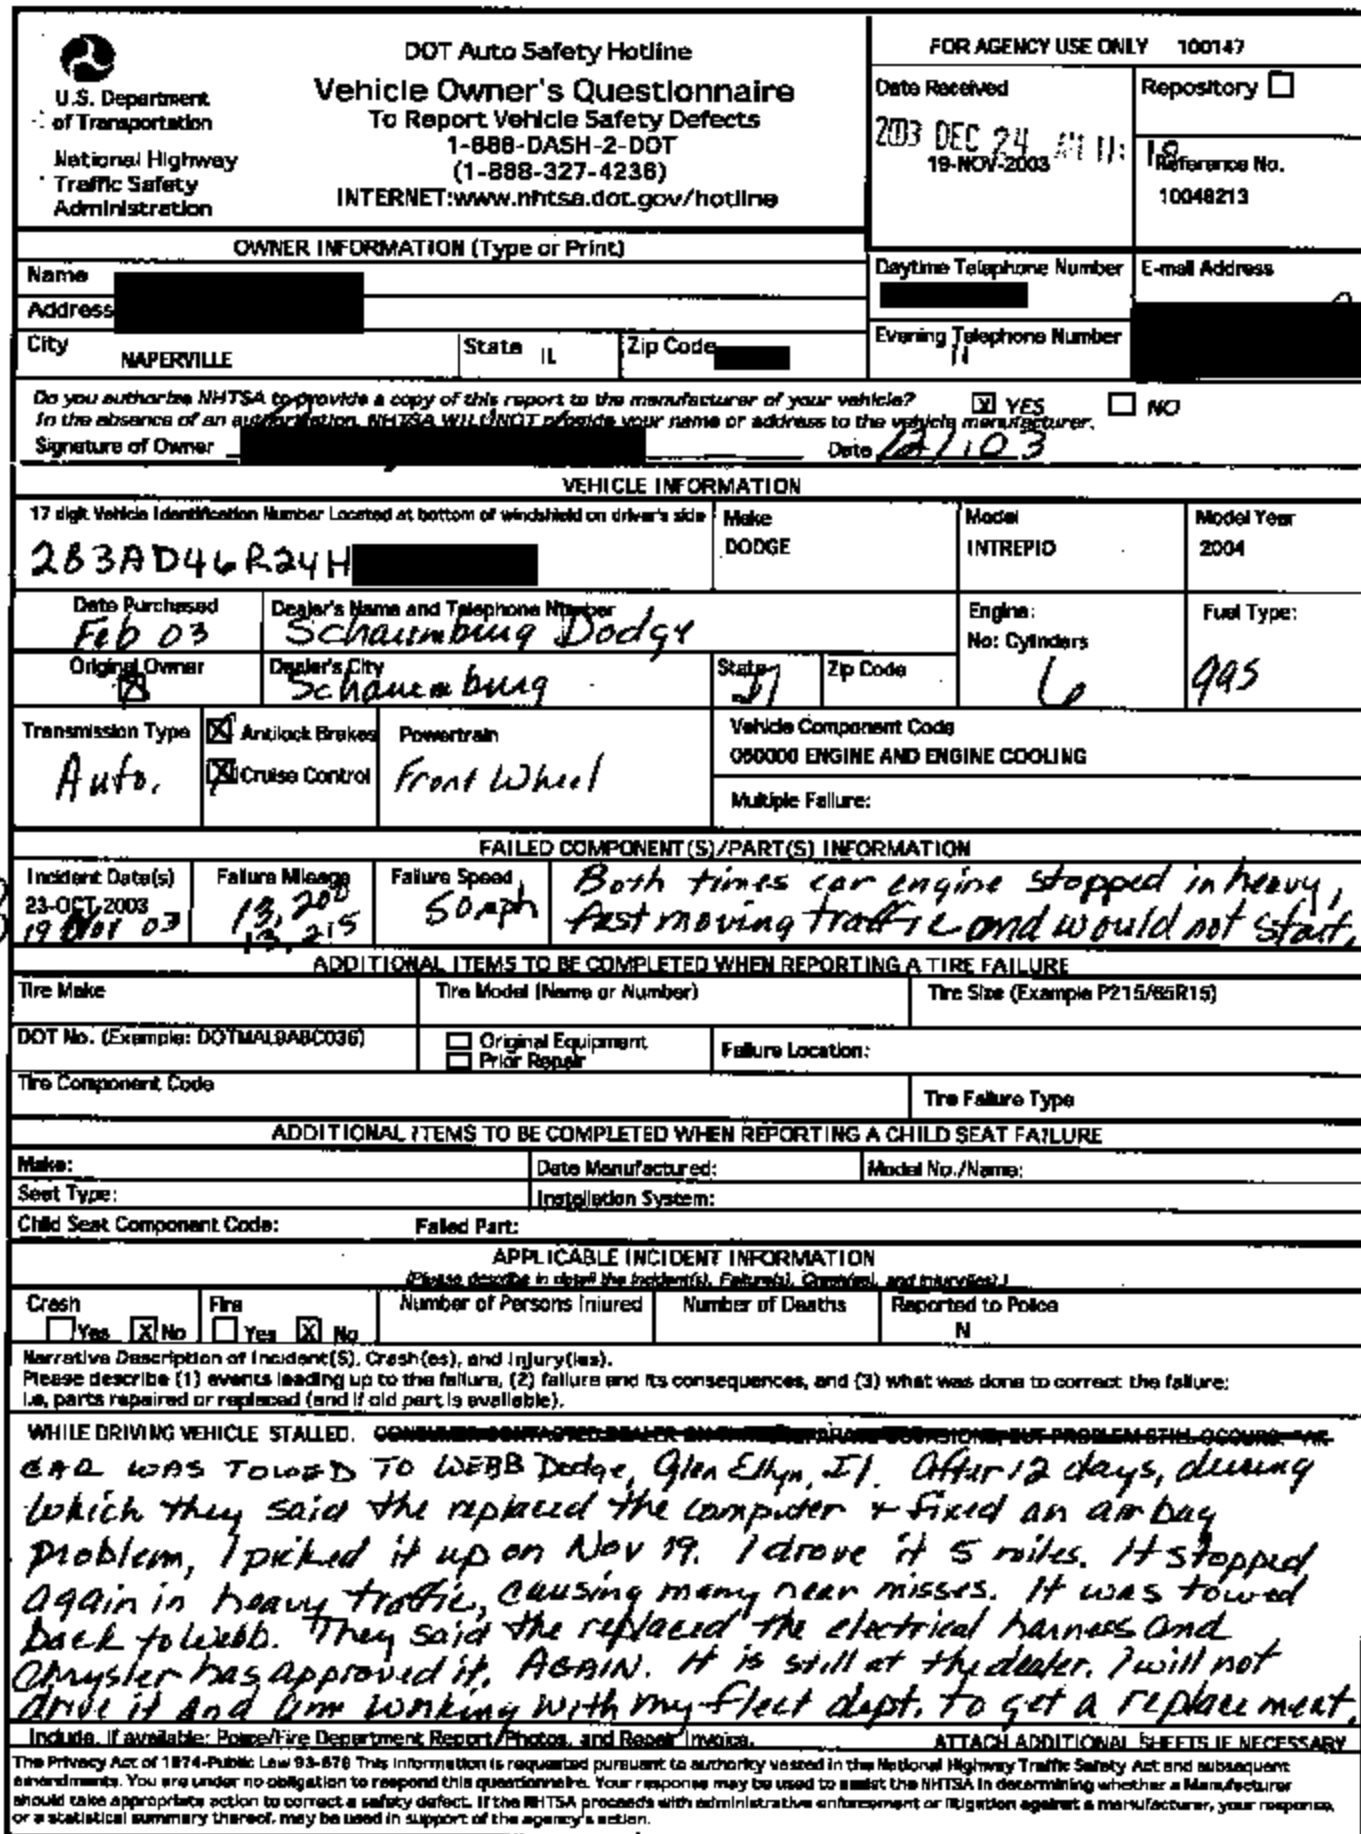 DOT Auto Safety Hotline
Vehicle Owner's Questionnaire
To Report Vehicle Safety Defects
1-888-DASH-2-DOT
(1-888-327-4236)
INTERNET:www.nhtsa.dot.gov/hotline
U.S. Department
of Transportation
National Highway
Traffic Safety
Administration
FOR AGENCY USE ONLY 100147
Date Received
2003 DEC 24 AM 11:
19-NOV-2003
Repository
Reference No.
10048213
OWNER INFORMATION (Type or Print)
Name
Address
City NAPERVILLE
State IL
Zip Code
Daytime Telephone Number
E-mail Address
Evening Telephone Number
11
Do you authorize NHTSA to provide a copy of this report to the manufacturer of your vehicle? X YES NO
In the absence of an authorization, NHTSA WILL NOT provide your name or address to the vehicle manufacturer.
Signature of Owner Date
VEHICLE INFORMATION
17 digit Vehicle Identification Number Located at bottom of windshield on driver's side
2B3AD46R24H
Make
DODGE
Model
INTREPID
Model Year
2004
Date Purchased
Feb 03
Dealer's Name and Telephone Number
Schaumburg Dodge
Engine:
No: Cylinders
6
Fuel Type:
gas
Original Owner
X
Dealer's City
Schaumburg
State
Il
Zip Code
Transmission Type
Auto.
X Antilock Brakes
X Cruise Control
Powertrain
Front Wheel
Vehicle Component Code
060000 ENGINE AND ENGINE COOLING
Multiple Failure:
FAILED COMPONENT(S)/PART(S) INFORMATION
Incident Date(s)
23-OCT-2003
19 Nov 03
Failure Mileage
13,200
13,215
Failure Speed
50 mph
Both times car engine stopped in heavy,
fast moving traffic and would not start.
ADDITIONAL ITEMS TO BE COMPLETED WHEN REPORTING A TIRE FAILURE
Tire Make
Tire Model (Name or Number)
Tire Size (Example P215/65R15)
DOT No. (Example: DOTMAL9ABC036)
Original Equipment
Prior Repair
Failure Location:
Tire Component Code
Tire Failure Type
ADDITIONAL ITEMS TO BE COMPLETED WHEN REPORTING A CHILD SEAT FAILURE
Make:
Date Manufactured:
Model No./Name:
Seat Type:
Installation System:
Child Seat Component Code:
Failed Part:
APPLICABLE INCIDENT INFORMATION
(Please describe in detail the Incident(s), Failure(s), Crash(es), and Injury(ies).)
Crash
Yes X No
Fire
Yes X No
Number of Persons Injured
Number of Deaths
Reported to Police
N
Narrative Description of Incident(S), Crash(es), and Injury(ies).
Please describe (1) events leading up to the failure, (2) failure and its consequences, and (3) what was done to correct the failure;
i.e, parts repaired or replaced (and if old part is available).
WHILE DRIVING VEHICLE STALLED.
CAR WAS TOWED TO WEBB Dodge, Glen Ellyn, Il. After 12 days, during
which they said the replaced the computer + fixed an air bag
problem, I picked it up on Nov 19. I drove it 5 miles. It stopped
again in heavy traffic, causing many near misses. It was towed
back to Webb. They said the replaced the electrical harness and
Chrysler has approved it. AGAIN. It is still at the dealer. I will not
drive it and am working with my fleet dept. to get a replacement.
Include, if available: Police/Fire Department Report/Photos, and Repair Invoice.
ATTACH ADDITIONAL SHEETS IF NECESSARY
The Privacy Act of 1974-Public Law 93-579 This information is requested pursuant to authority vested in the National Highway Traffic Safety Act and subsequent
amendments. You are under no obligation to respond this questionnaire. Your response may be used to assist the NHTSA in determining whether a Manufacturer
should take appropriate action to correct a safety defect. If the NHTSA proceeds with administrative enforcement or litigation against a manufacturer, your response,
or a statistical summary thereof, may be used in support of the agency's action.